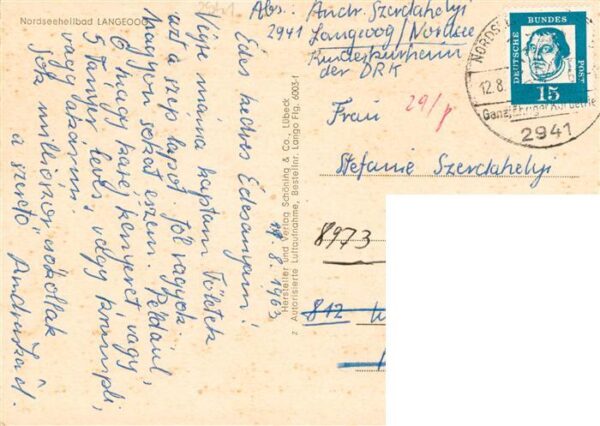 Nordseeheilbad LANGEOOG
2941
Abs.: Andr. Szerdahelyi
2941 Langeoog/Nordsee
Kinderkurheim
der DRK
NORDS
12.8.
Ganzjährige Kurbetrie
2941
DEUTSCHE BUNDES POST
15
29/p
Frau
Stefanie Szerdahelyi
8973
812
Hersteller und Verlag Schöning & Co., Lübeck
2 Autorisierte Luftaufnahme, Bestellnr. Lango Flg. 6005-1
11.8.1963
Édes kedves Édesanyám!
Végre máma kaptam Tőletek
azt a szép lapot. Jól vagyok
Nagyon sokat eszem. Például,
6 nagy karéj kenyeret vagy
5 tányér leves, vagy krumpli,
vagy
Sok milliószor csókollak
a szerető Andriskád.